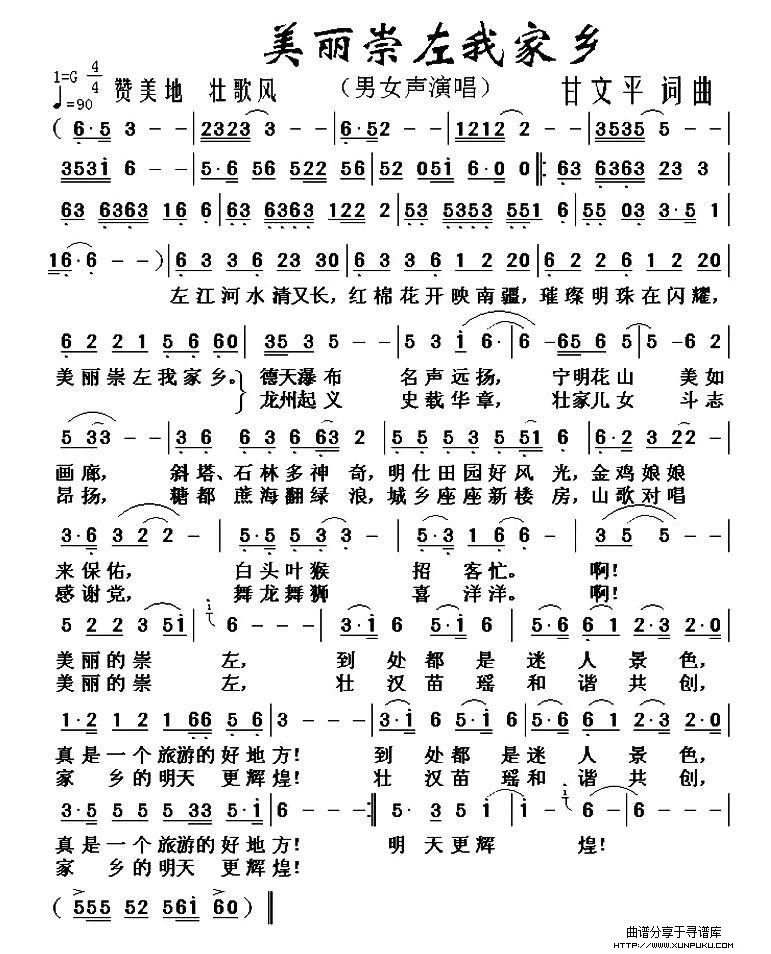 美丽崇左我家乡
1=G 4/4
♩=90 赞美地 壮歌风 （男女声演唱） 甘文平 词曲
( 6·5 3 - - | 2323 3 - - | 6·52 - - | 1212 2 - - | 3535 5 - - |
3531̇ 6 - - | 5·6 56 522 56 | 52 051̇ 6·0 0 ‖: 63 6363 23 3 |
63 6363 16 6 | 63 6363 122 2 | 53 5353 551 6 | 55 03 3·5 1 |
16·6 - - ) | 6 3 3 6 23 30 | 3 6 3 6 1 2 20 | 6 2 2 6 1 2 20 |
左江河水清又长，红棉花开映南疆，璀璨明珠在闪耀，
6 2 2 1 5 6 60 | 35 3 5 - | 5 3 1̇ 6· | 6 -65 6 5 | 5 -6 2 |
美丽崇左我家乡。德天瀑布 名声远扬， 宁明花山 美如
龙州起义 史载华章， 壮家儿女 斗志
5 33 - - | 3 6 6 3 6 63 2 | 5 5 5 3 5 51 6 | 6·2 3 22 - |
画廊， 斜塔、石林多神奇，明仕田园好风光，金鸡娘娘
昂扬， 糖都蔗海翻绿浪，城乡座座新楼房，山歌对唱
3·6 3 2 2 - - | 5·3 5 3 3 - | 5·3 1 6 6 - - | 3 5 5 - |
来保佑， 白头叶猴 招客忙。 啊！
感谢党， 舞龙舞狮 喜洋洋。 啊！
5 2 2 3 51̇ | 6 - - - | 3·1̇ 6 5·1̇ 6 | 5·6 6 1 2·3 2·0 |
美丽的崇 左， 到处都是迷人景色，
美丽的崇 左， 壮汉苗瑶和谐共创，
1·2 1 2 1 66 5 6 | 3 - - - | 3·1̇ 6 5·1̇ 6 | 5·6 6 1 2·3 2·0 |
真是一个旅游的好地方！ 到处都是迷人景色，
家乡的明天 更辉煌！ 壮汉苗瑶和谐共创，
3·5 5 5 5 33 5·1̇ | 6 - - - :‖ 5· 3 5 1̇ | 1̇ - 6 | 6 - - |
真是一个旅游的好地方！ 明天更辉 煌！
家乡的明天 更辉煌！
( 555 52 561̇ 60 ) ‖
曲谱分享于寻谱库
HTTP://WWW.XUNPUKU.COM